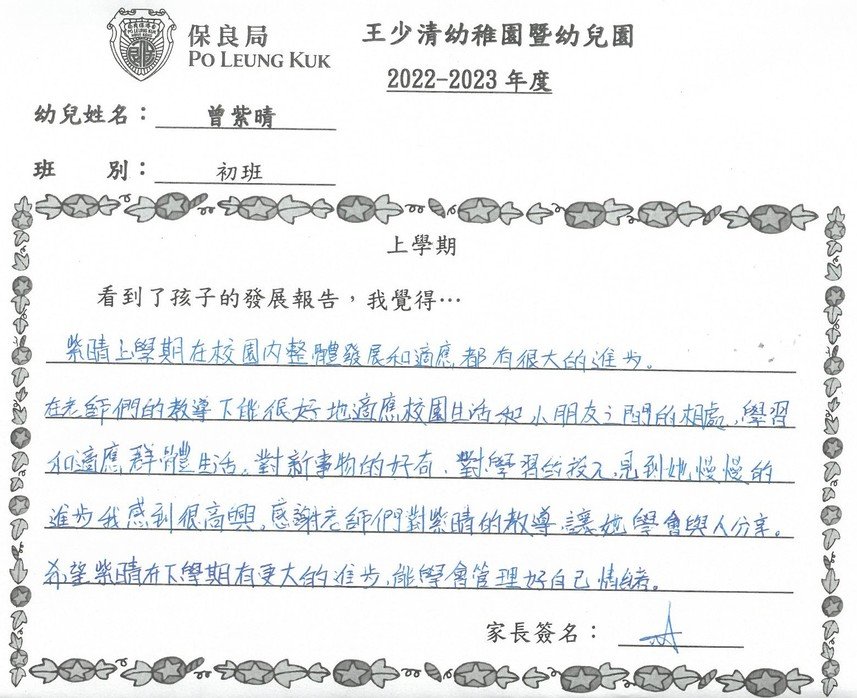 保良局
PO LEUNG KUK
王少清幼稚園暨幼兒園
2022-2023 年度
幼兒姓名： 曾紫晴
班 別： 初班
上學期
看到了孩子的發展報告，我覺得…
紫晴上學期在校園內整體發展和適應都有很大的進步。
在老師們的教導下能很好地適應校園生活和小朋友之間的相處，學習
和適應群體生活。對新事物的好奇，對學習的投入，見到她慢慢的
進步我感到很高興，感謝老師們對紫晴的教導，讓她學會與人分享。
希望紫晴在下學期有更大的進步，能學會管理好自己情緒。
家長簽名：